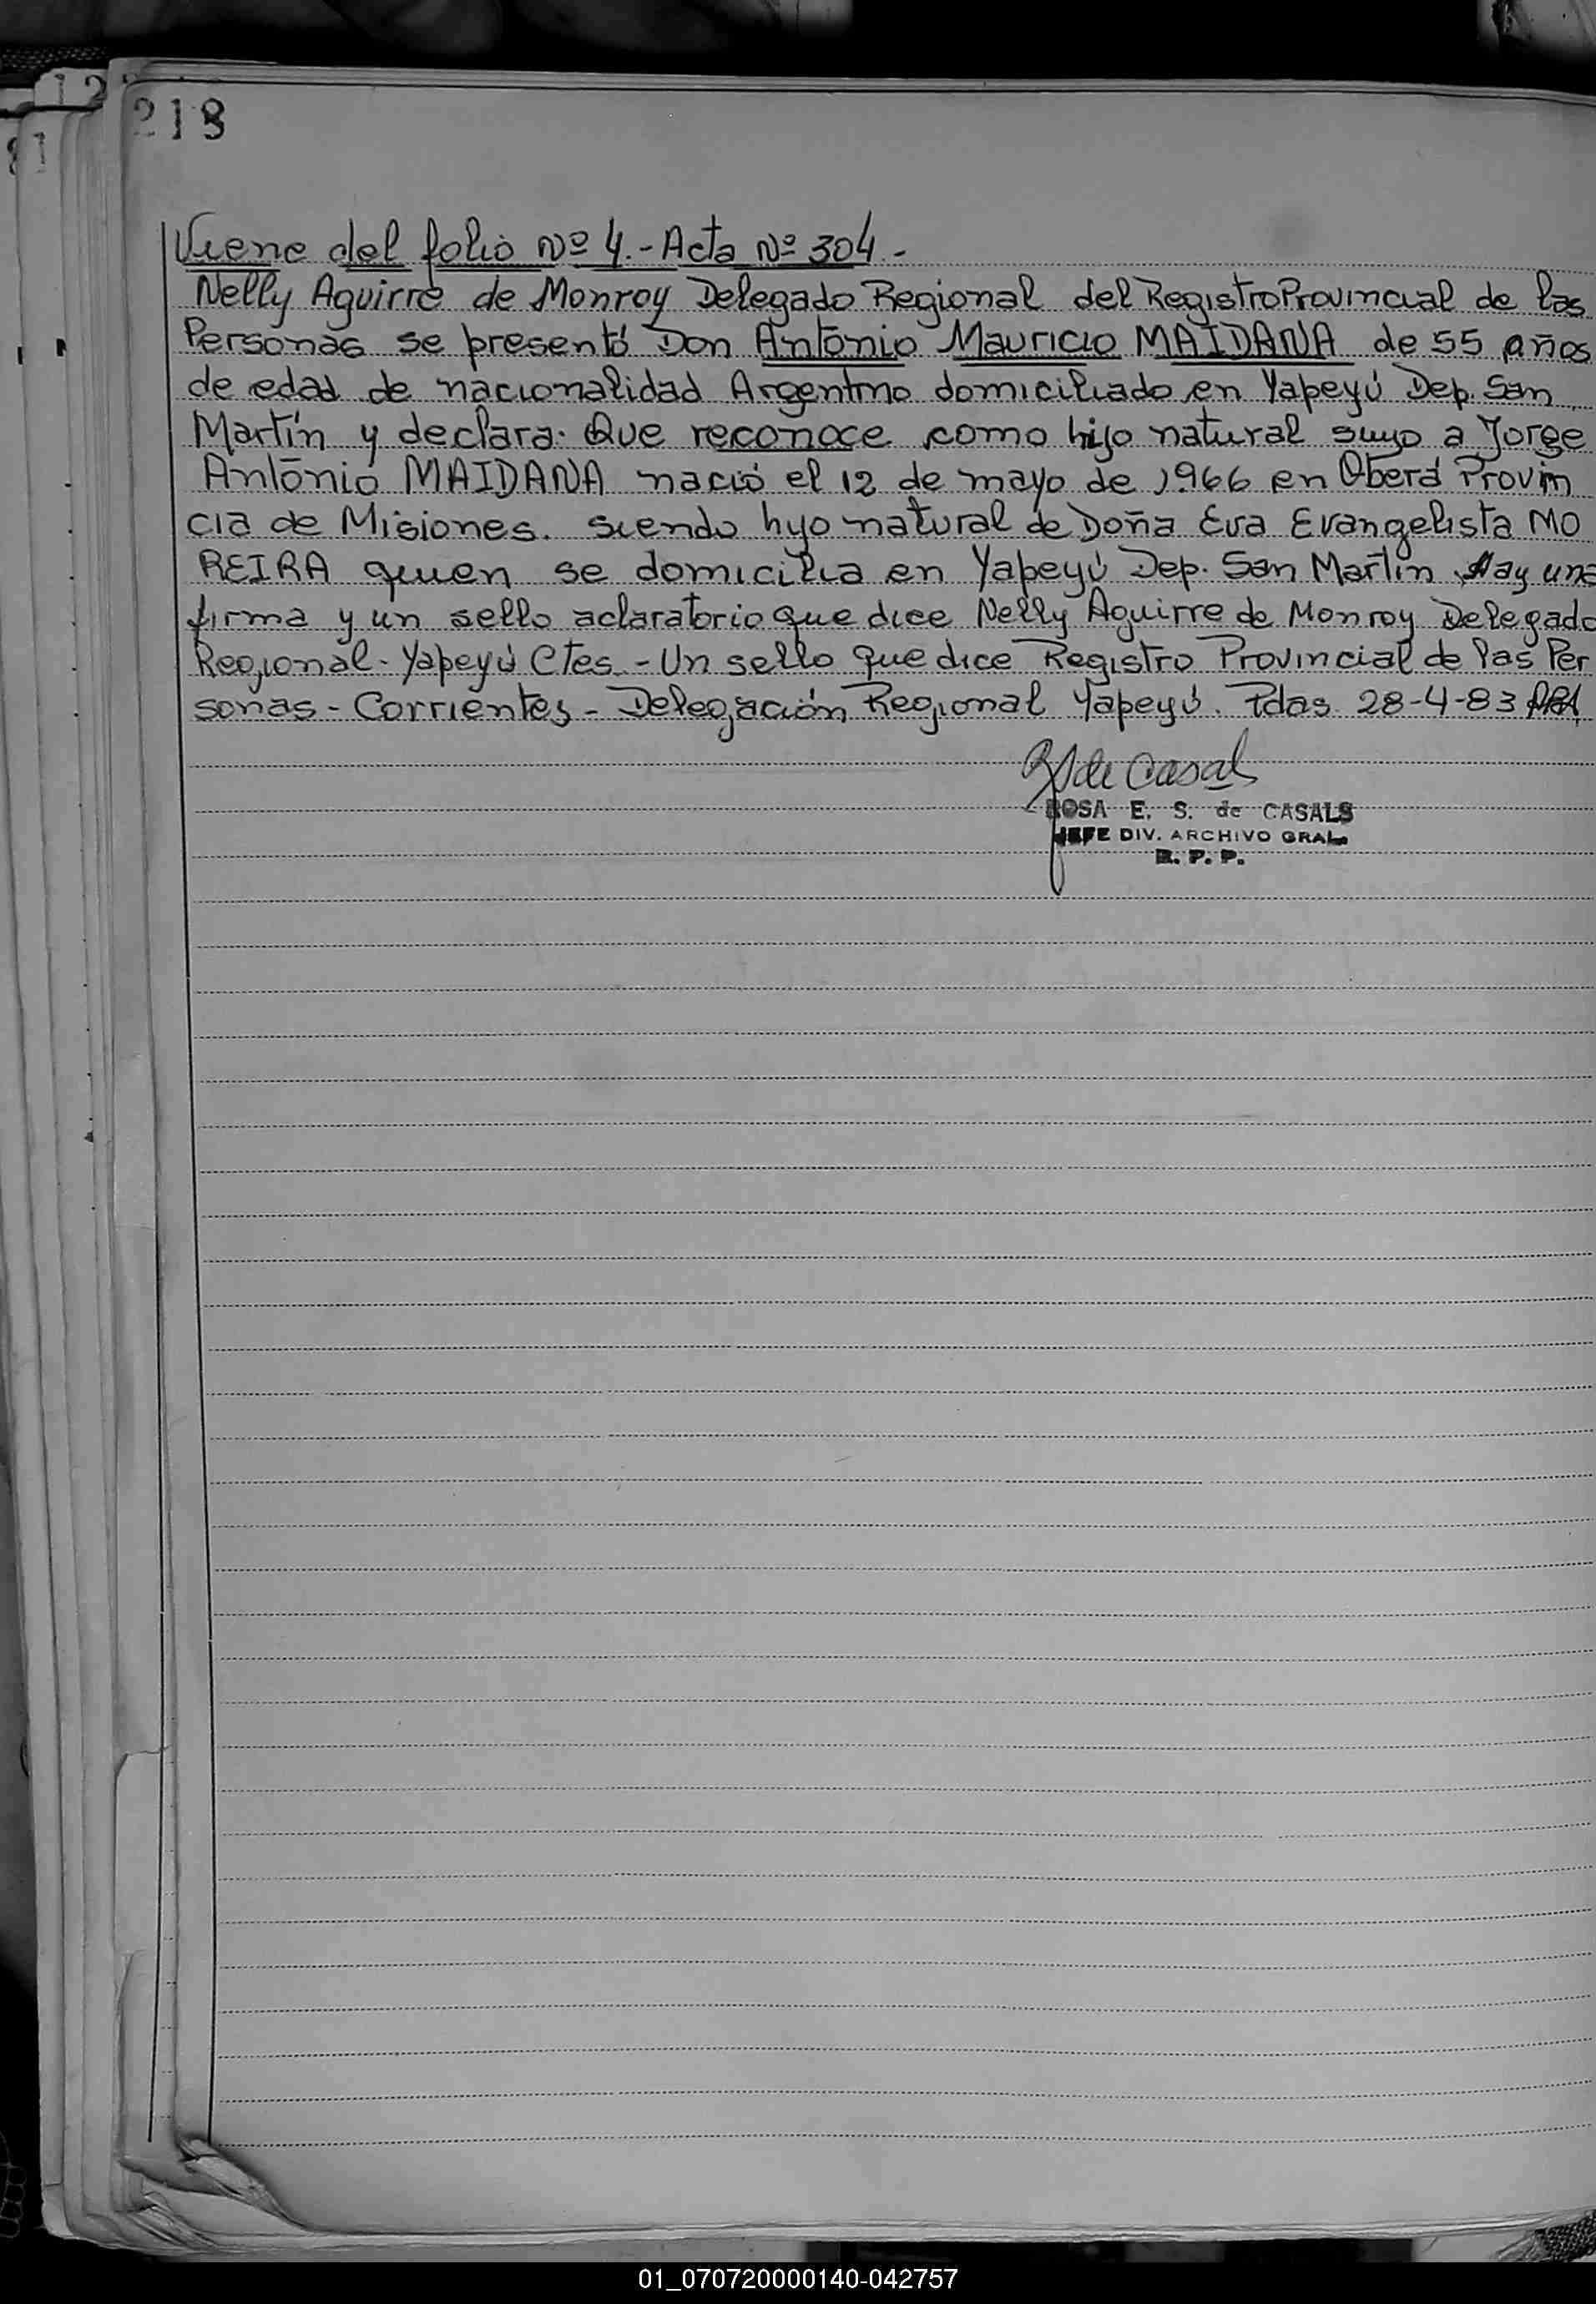 12
81
218
Viene del folio Nº 4.- Acta Nº 304.-
Nelly Aguirre de Monroy Delegado Regional del Registro Provincial de las
Personas se presentó Don Antonio Mauricio MAIDANA de 55 años
de edad de nacionalidad Argentino domiciliado en Yapeyú Dep. San
Martín y declara: Que reconoce como hijo natural suyo a Jorge
Antonio MAIDANA nació el 12 de mayo de 1966 en Oberá Provin
cia de Misiones. siendo hijo natural de Doña Eva Evangelista MO
REIRA quien se domicilia en Yapeyú Dep. San Martín. Hay una
firma y un sello aclaratorio que dice Nelly Aguirre de Monroy Delegado
Regional - Yapeyú Ctes. - Un sello que dice Registro Provincial de las Per
sonas - Corrientes - Delegación Regional Yapeyú. Pdas 28-4-83
de Casals
ROSA E. S. de CASALS
JEFE DIV. ARCHIVO GRAL.
R. P. P.
01_070720000140-042757